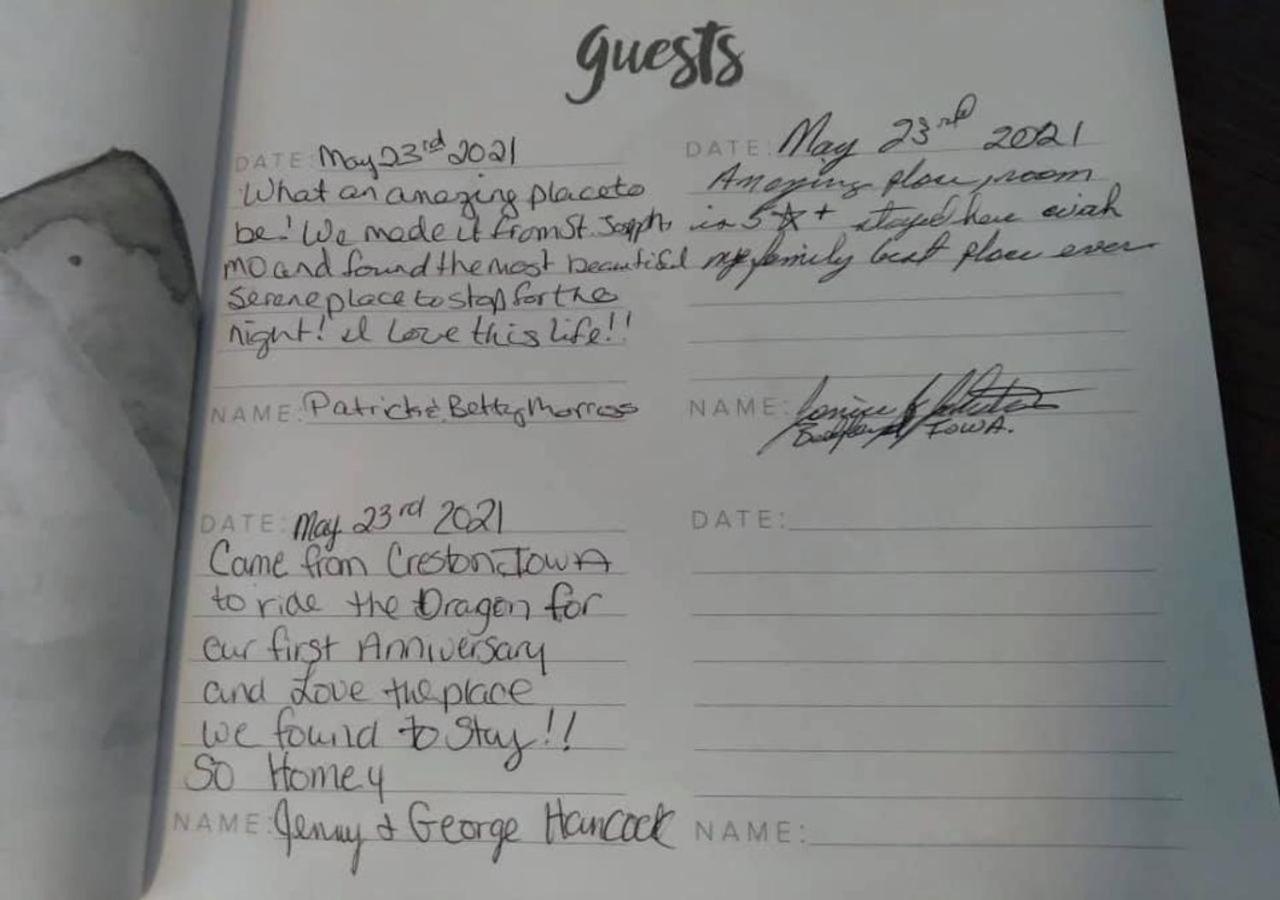 guests
DATE: May 23rd 2021
What an amazing place to
be! We made it from St. Joseph,
MO and found the most beautiful
serene place to stop for the
night! I Love this life!!
NAME: Patrick & Betty Morross
DATE: May 23rd 2021
Amazing place, room
is 5☆+ stayed here with
my family best place ever
NAME:
Bedford IOWA.
DATE: May 23rd 2021
Came from Creston, IOWA
to ride the Dragon for
our first Anniversary
and Love the place
we found to Stay!!
So Homey
NAME: Jenny & George Hancock
DATE:
NAME: